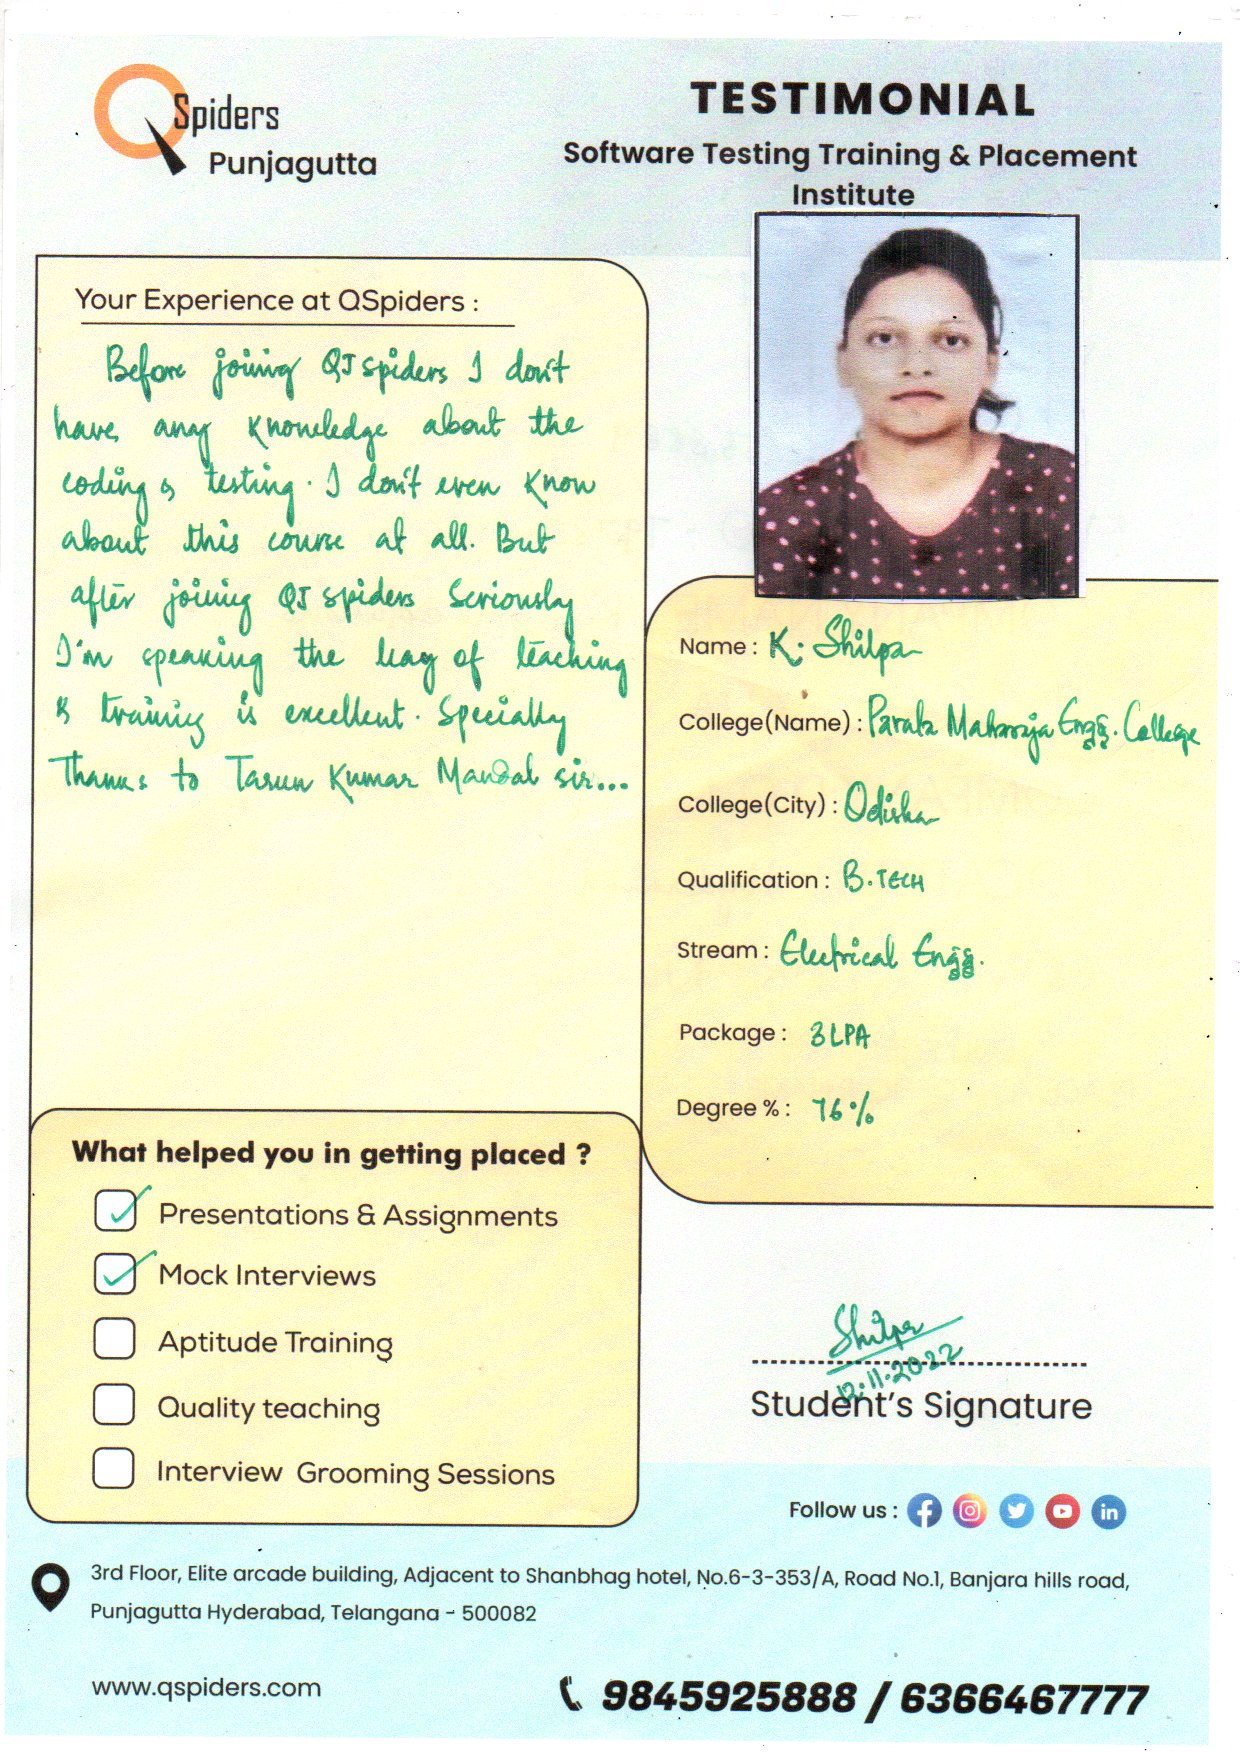 QSpiders
Punjagutta
TESTIMONIAL
Software Testing Training & Placement
Institute
Your Experience at QSpiders :
Before joining QJ spiders I don't
have any knowledge about the
coding & testing. I don't even know
about this course at all. But
after joining QJ spiders Seriously
I'm speaking the way of teaching
& training is excellent. Specially
Thanks to Tarun Kumar Mandal sir...
Name : K. Shilpa
College(Name) : Parala Maharaja Engg. College
College(City) : Odisha
Qualification : B.TECH
Stream : Electrical Engg.
Package : 3 LPA
Degree % : 76%
What helped you in getting placed ?
Presentations & Assignments
Mock Interviews
Aptitude Training
Quality teaching
Interview Grooming Sessions
Shilpa
12.11.2022
Student's Signature
Follow us :
3rd Floor, Elite arcade building, Adjacent to Shanbhag hotel, No.6-3-353/A, Road No.1, Banjara hills road,
Punjagutta Hyderabad, Telangana - 500082
www.qspiders.com
9845925888 / 6366467777